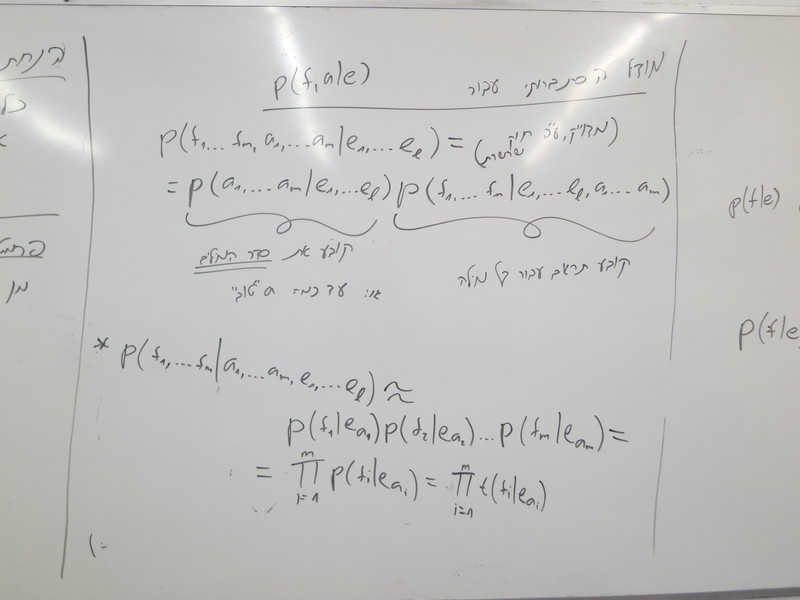 מודל הסתברותי עבור p(f,a|e)
p(f₁...fₘ, a₁,...aₘ|e₁,...eₗ) = (מדויק, ע"פ חוק שרשרת)
= p(a₁,...aₘ|e₁,...eₗ) p(f₁,...fₘ|e₁,...eₗ,a₁...aₘ)
קובע את סדר המלים
קובע תרגום עבור כל מילה
או: עד כמה a "טוב"
* p(f₁,...fₘ|a₁,...aₘ,e₁,...eₗ) ≈
p(f₁|eₐ₁)p(f₂|eₐ₂)...p(fₘ|eₐₘ) =
= ∏ᵢ₌₁ᵐ p(fᵢ|eₐᵢ) = ∏ᵢ₌₁ᵐ t(fᵢ|eₐᵢ)
(:
p(f|e)
p(f|e
הנחת
כל
מן